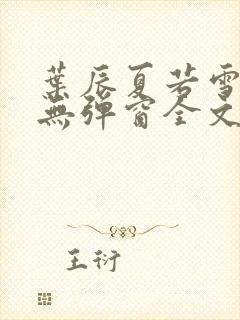 葉辰夏若雪
無彈窗全文
王衍